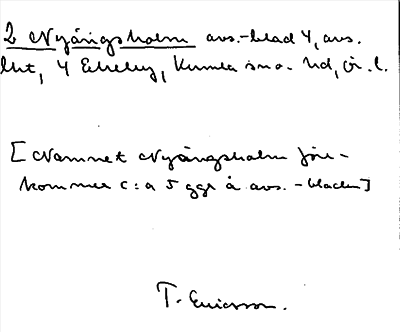 2 Nyängsholm avs.-blad 4, avs.
4 Ekeby, Kumla sn o. hd, Ör. l.
[Namnet Nyängsholm före-
kommer c:a 5 ggr å avs.-bladen]
T. Ericsson.